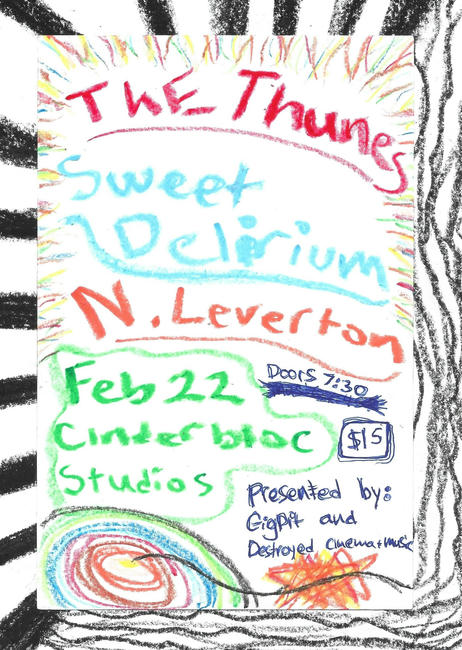 ThE Thunes
Sweet
Delirium
N. Leverton
Feb 22
Cinderbloc
Studios
Doors 7:30
$15
Presented by:
GigPit and
Destroyed cinema+music